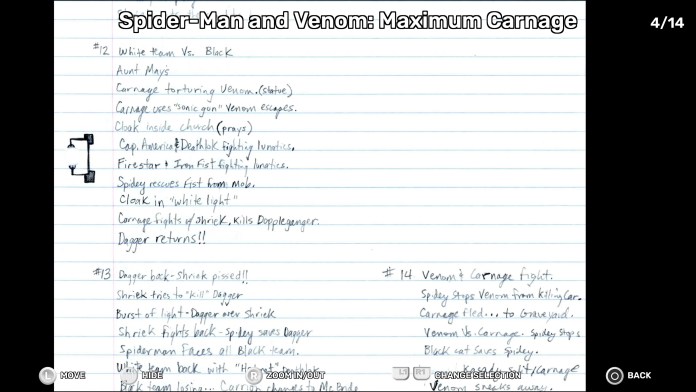 Spider-Man and Venom: Maximum Carnage
4/14
#12 White team Vs. Black
Aunt May's
Carnage torturing Venom. (statue)
Carnage uses "sonic gun" Venom escapes.
Cloak inside church (prays)
Cap. America & Deathlok fighting lunatics.
Firestar & Iron Fist fighting lunatics.
Spidey rescues Fist from Mob.
Cloak in "white light"
Carnage fights w/ Shriek, kills Doppleganger.
Dagger returns!!
#13 Dagger back - Shriek pissed!!
Shriek tries to "kill" Dagger
Burst of light - Dagger over Shriek
Shriek Fights back - Spidey saves Dagger
Spiderman Faces all Black team.
White team back with Deathlok
team losing... Carrion changes to McBride
#14 Venom & Carnage fight.
Spidey Stops Venom from killing Car.
Carnage fled... to Graveyard.
Venom Vs. Carnage. Spidey Stops
Black cat Saves Spidey.
Kasady split/Carnage
Venom sneaks away.
L MOVE
HIDE
R ZOOM IN/OUT
CHANGE SELECTION
BACK